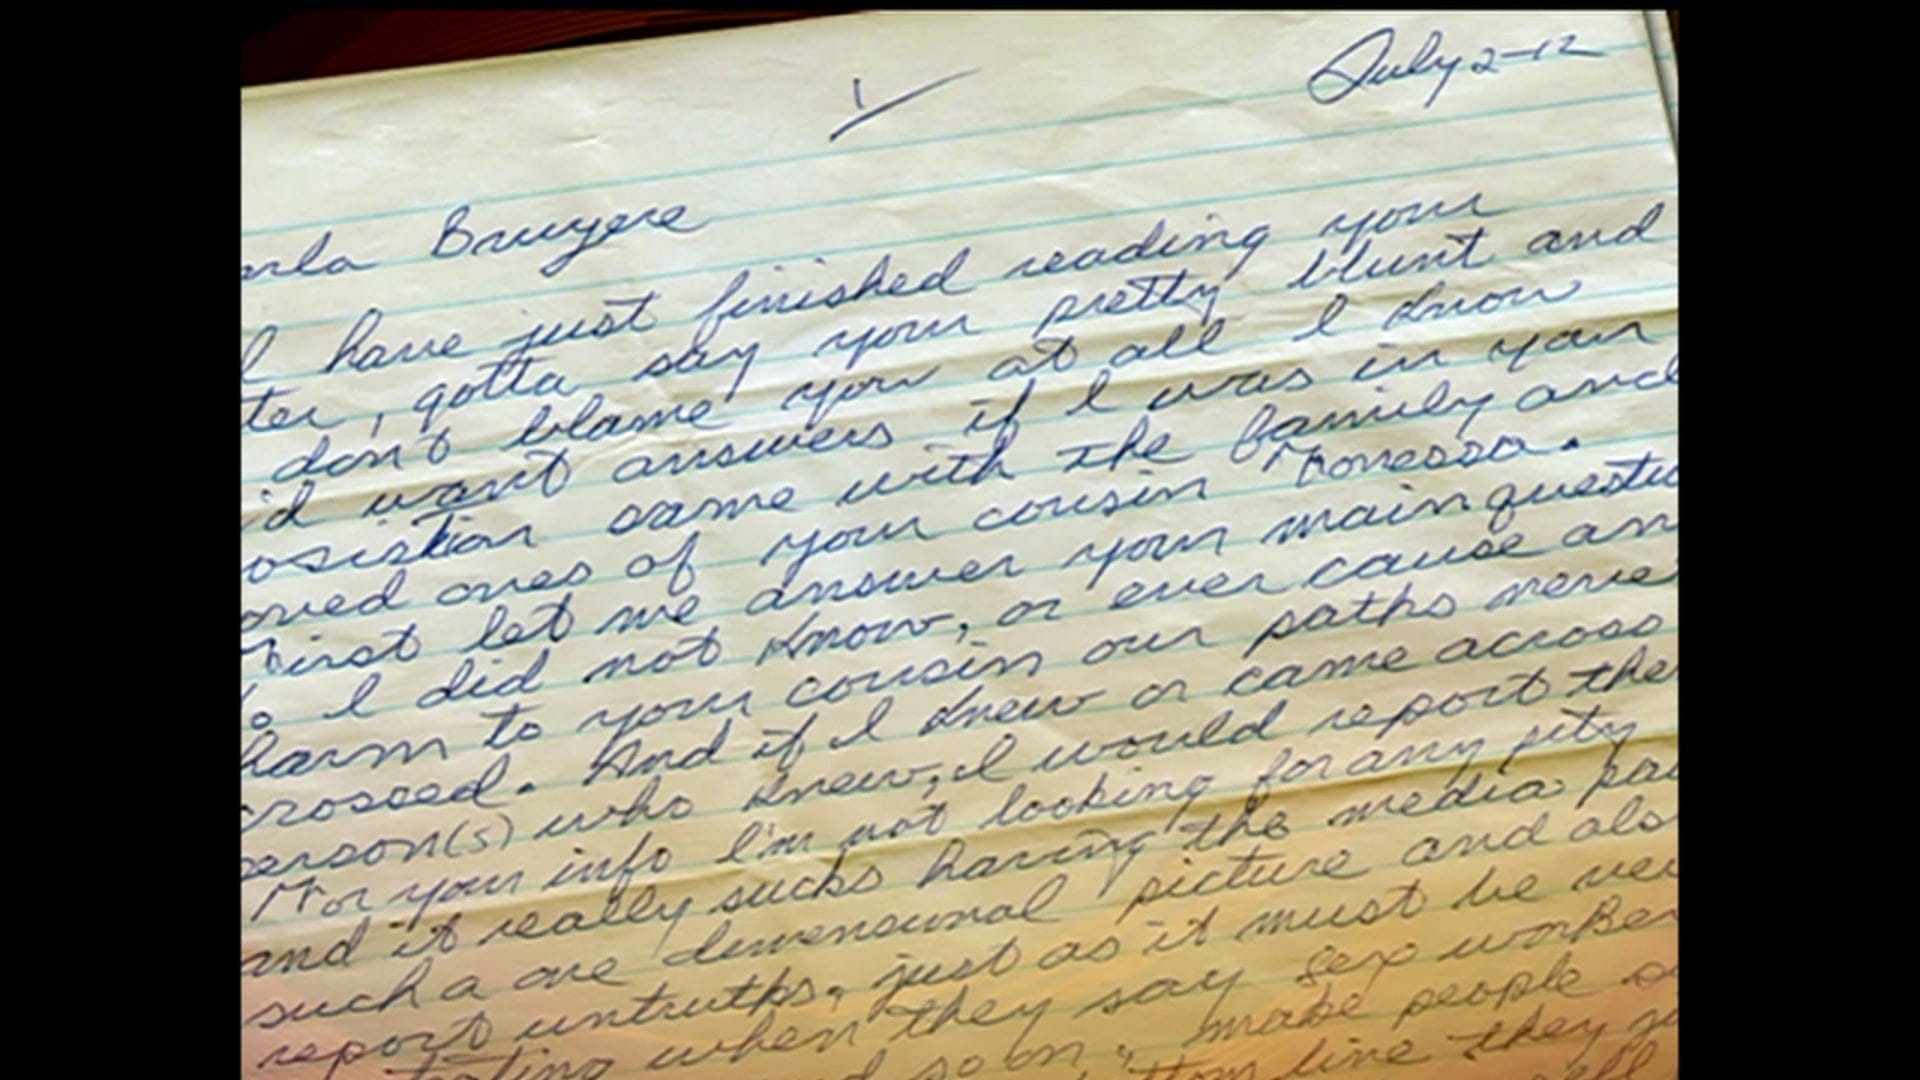 1
July 2-12
arla Bruyere
I have just finished reading your
ter, gotta say your pretty blunt and
don't blame you at all I know
id want answers if I was in your
osistion same with the family and
oved ones of your cousin Vonessa.
First let me answer your main questio
o I did not know, or ever cause an
harm to your cousin our paths neve
crossed. And if I knew or came across
person(s) who knew, I would report the
For your info I'm not looking for any pity
and it really sucks having the media pai
such a one dimensional picture and als
report untruths, just as it must be ve
when they say sex worker
so on, make people
line they